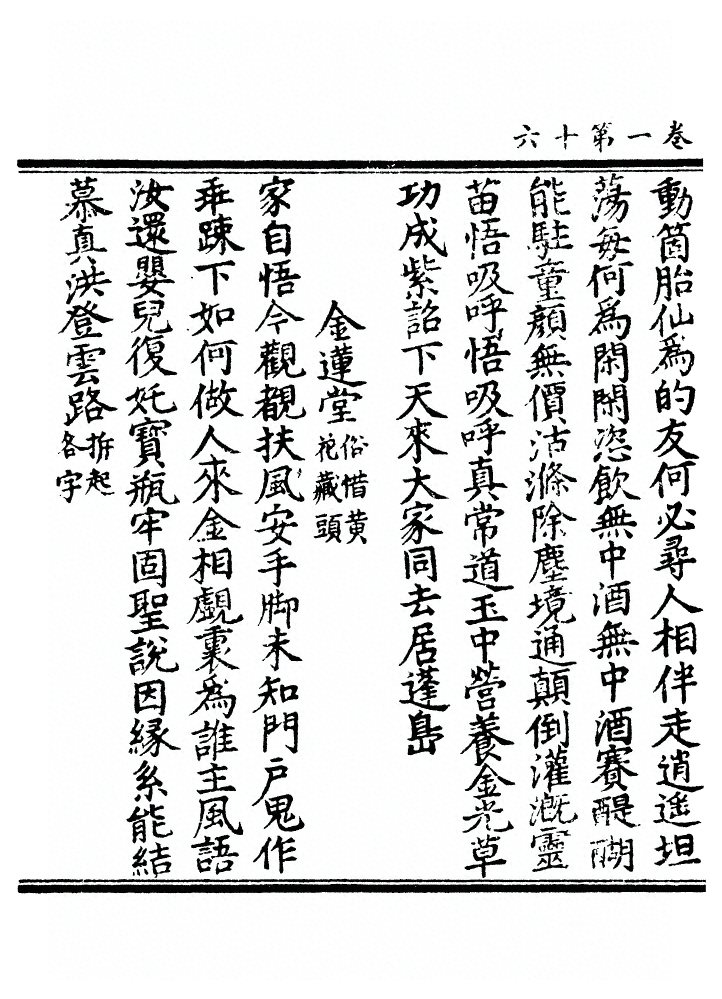 卷一第十六
動箇胎仙為的友何必尋人相伴走逍遙坦
蕩每何為閑閑恣飲無中酒無中酒賽醍醐
能駐童顏無價沽滌除塵境通顛倒灌溉靈
苗悟吸呼悟吸呼真常道玉中營養金光草
功成紫詔下天來大家同去居蓬島
金蓮堂俗惜黄花藏頭
家自悟今觀覩扶風安手脚未知門戶鬼作
乖踈下如何做人來金相覷裏為誰主風語
汝還嬰兒復奼寶瓶牢固聖說因緣糸能結
慕真洪登雲路拆起各字